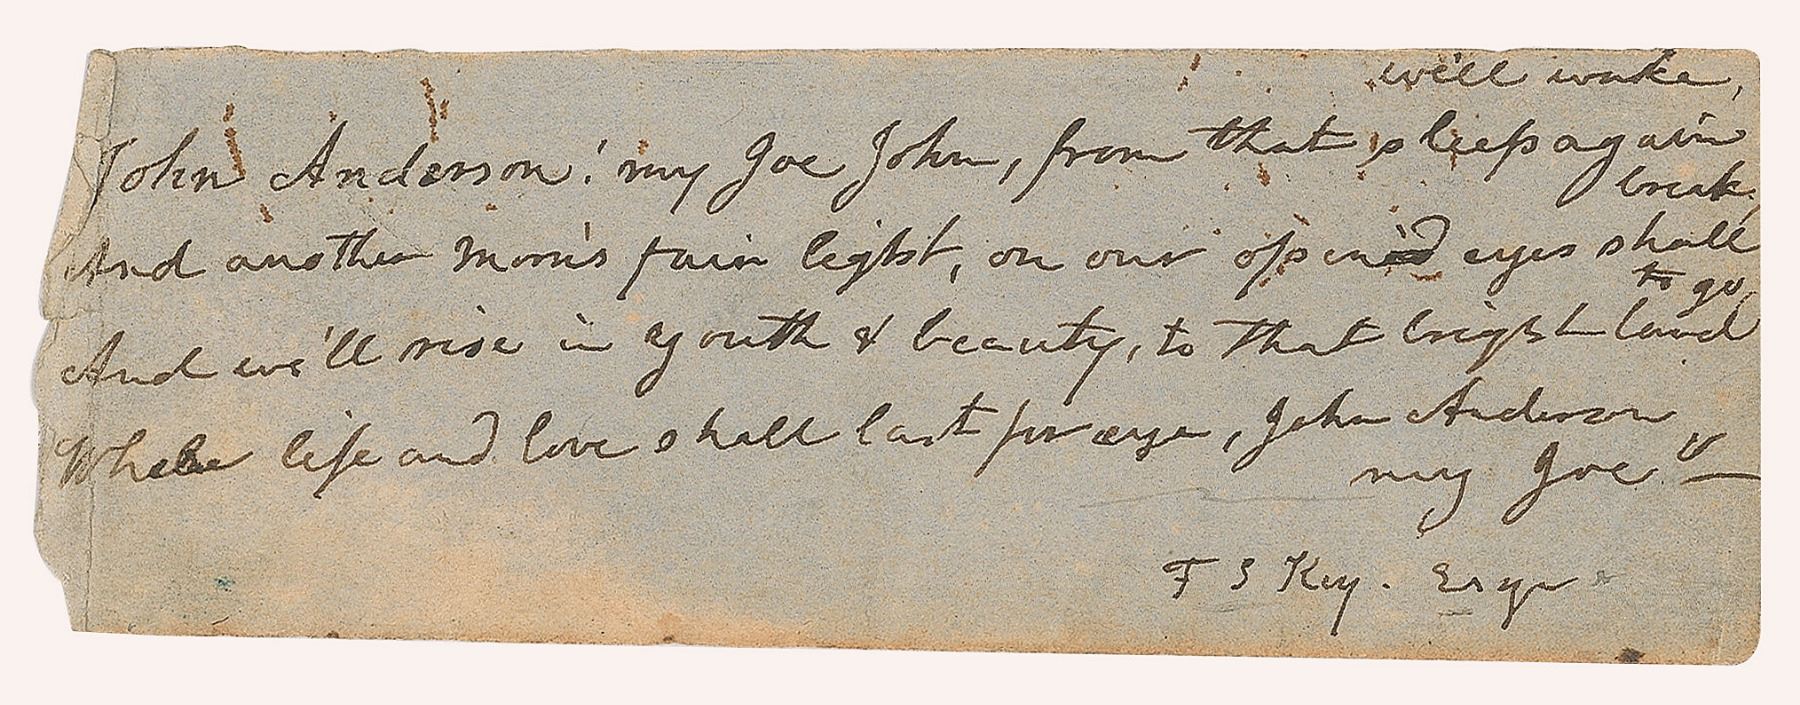 we'll wake,
John Anderson! my Joe John, from that sleep again
break,
And another morn's fair light, on our open'd eyes shall
to go,
And we'll rise in youth & beauty, to that bright land
Where life and love shall last for aye, John Anderson
my Joe —
F S Key. Esqr